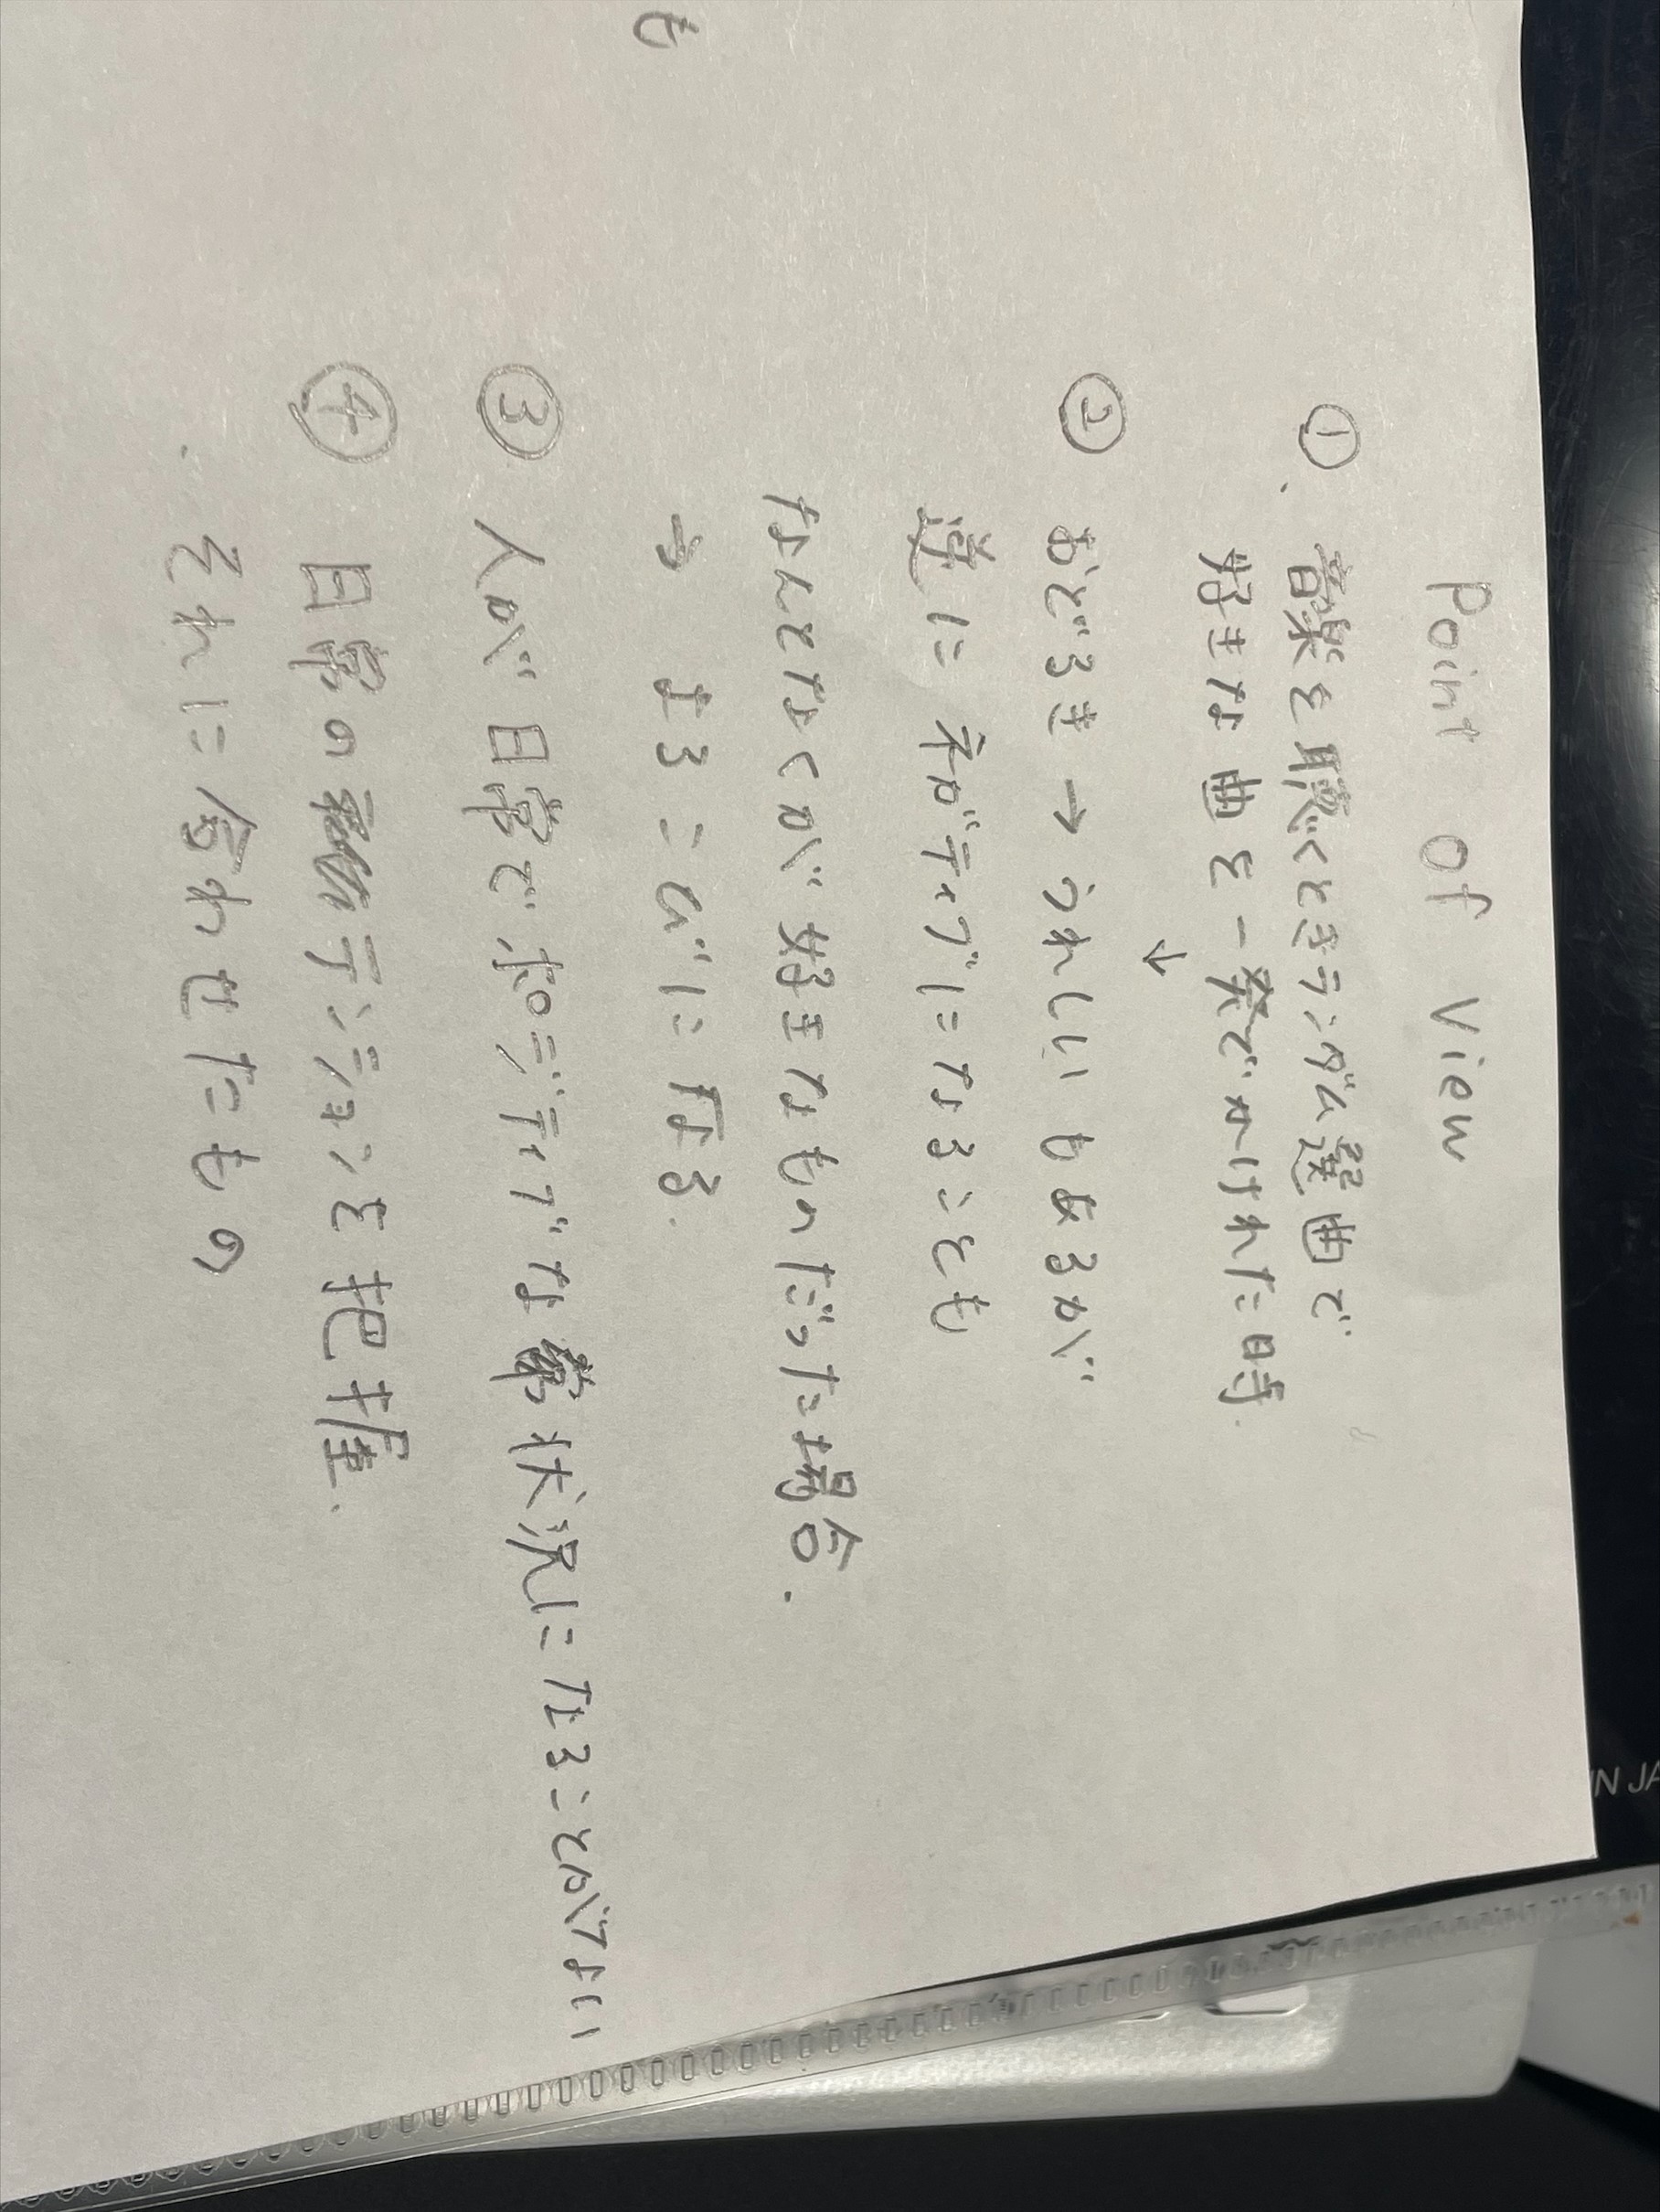 Point Of View
① 音楽を聴くときランダム選曲で
好きな曲を一発でかけれた時
↓
② おどろき → うれしいもあるが
逆にネガティブになることも
なんとなくが好きなものだった場合.
→ よろこびになる.
も
③ 人が日常でポジティブな状況になることがない
④ 日常のテンションを把握.
それに合わせたもの
IN JA